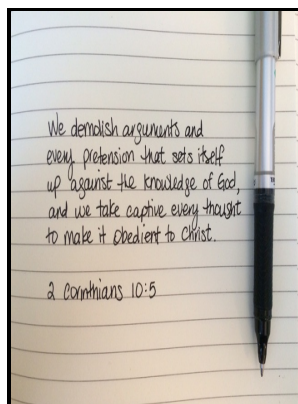 We demolish arguments and
every pretension that sets itself
up against the knowledge of God,
and we take captive every thought
to make it obedient to Christ.
2 Corinthians 10:5